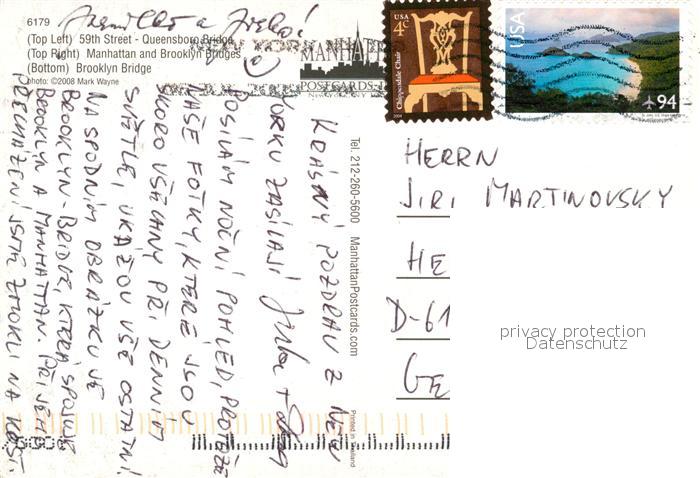 6179
(Top Left) 59th Street - Queensboro Bridge
(Top Right) Manhattan and Brooklyn Bridges
(Bottom) Brooklyn Bridge
photo: ©2008 Mark Wayne
NEW YORK
MANHATTAN
POSTCARDS
USA
4c
Chippendale Chair
2004
USA
94
KRÁSNÝ POZDRAV Z NEW
YORKU ZASÍLAJÍ
POSÍLÁM NOČNÍ POHLED, PROTOŽE
NAŠE FOTKY, KTERÉ JSOU
SKORO VŠECHNY PŘI DENNÍM
SVĚTLE, UKÁŽOU VŠE OSTATNÍ.
NA SPODNÍM OBRÁZKU JE
BROOKLYN-BRIDGE, KTERÁ SPOJUJE
BROOKLYN A MANHATTAN. PŘI JEJÍM
JSME ZMOKLI NA KOST.
Tel. 212-260-5600 ManhattanPostcards.com
Printed in Thailand
HERRN
JIRI MARTINOVSKY
HE
D-61
GE
privacy protection
Datenschutz